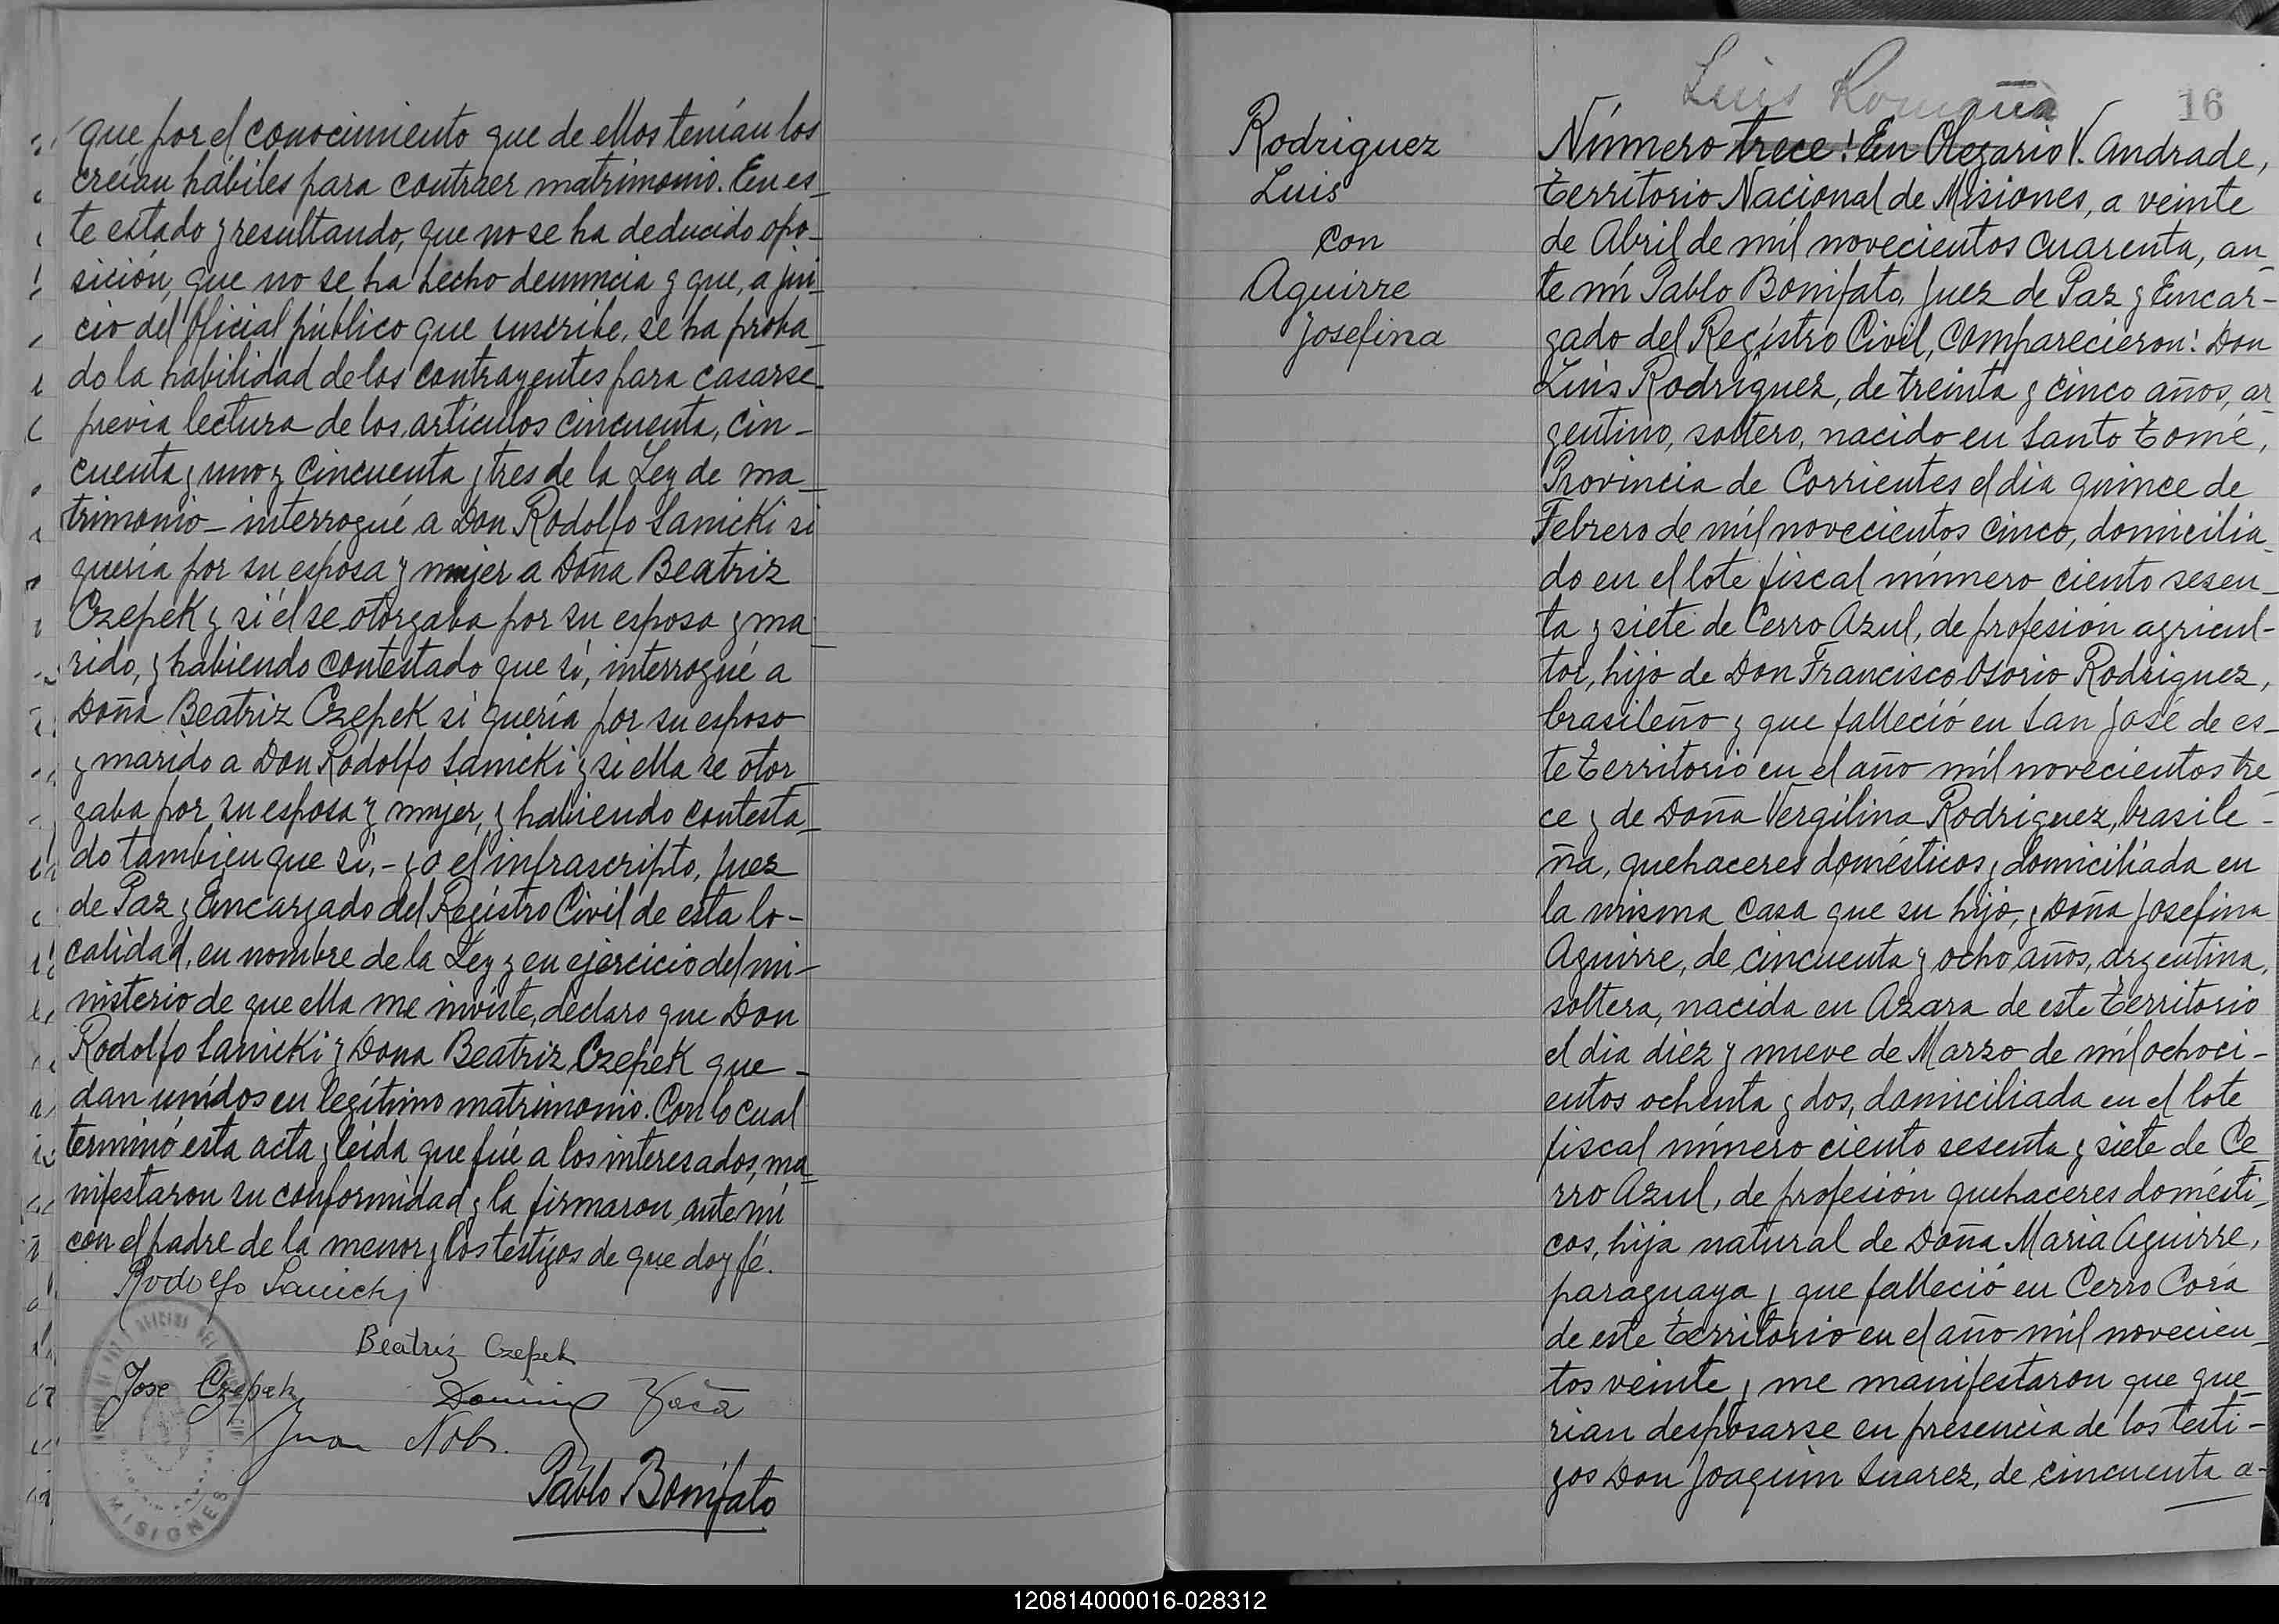 que por el conocimiento que de ellos tenían los
creían hábiles para contraer matrimonio. En es-
te estado y resultando, que no se ha deducido opo-
sición, que no se ha hecho denuncia y que, a jui-
cio del Oficial público que suscribe, se ha proba-
do la habilidad de los contrayentes para casarse-
previa lectura de los artículos cincuenta, cin-
cuenta y uno y cincuenta y tres de la Ley de ma-
trimonio- interrogué a Don Rodolfo Sanicki si
quería por su esposa y mujer a Doña Beatriz
Czepek y si él se otorgaba por su esposo y ma-
rido, y habiendo contestado que sí, interrogué a
Doña Beatriz Czepek si quería por su esposo
y marido a Don Rodolfo Sanicki y si ella se otor-
gaba por su esposa y mujer, y habiendo contesta-
do tambien que sí,- yo el infrascripto, Juez
de Paz y Encargado del Registro Civil de esta lo-
calidad, en nombre de la Ley y en ejercicio del mi-
nisterio de que ella me inviste, declaro que Don
Rodolfo Sanicki y Dona Beatriz Czepek que-
dan unidos en legítimo matrimonio. Con lo cual
terminó esta acta y leída que fué a los interesados, ma-
nifestaron su conformidad y la firmaron ante mí
con el padre de la menor y los testigos de que doy fé.
Rodolfo Sanicki
Beatriz Czepek
Jose Czepek
Juan
Pablo Bonifato
MISIONES
Luis
16
Rodriguez
Luis
con
Aguirre
Josefina
Número trece: En Olegario V. Andrade,
Territorio Nacional de Misiones, a veinte
de Abril de mil novecientos cuarenta, an-
te mí Pablo Bonifato, Juez de Paz y Encar-
gado del Registro Civil, comparecieron: Don
Luis Rodriguez, de treinta y cinco años, ar-
gentino, soltero, nacido en Santo Tomé,
Provincia de Corrientes el dia quince de
Febrero de mil novecientos cinco, domicilia-
do en el lote fiscal número ciento sesen-
ta y siete de Cerro Azul, de profesión agricul-
tor, hijo de Don Francisco Osorio Rodriguez,
brasileño y que falleció en San José de es-
te Territorio en el año mil novecientos tre-
ce y de Doña Vergilina Rodriguez, brasile-
ña, quehaceres domésticos y domiciliada en
la misma casa que su hijo, y Doña Josefina
Aguirre, de cincuenta y ocho años, argentina,
soltera, nacida en Azara de este Territorio
el dia diez y nueve de Marzo de mil ochoci-
entos ochenta y dos, domiciliada en el lote
fiscal número ciento sesenta y siete de Ce-
rro Azul, de profesión quehaceres domésti-
cos, hija natural de Doña Maria Aguirre,
paraguaya y que falleció en Cerro Corá
de este Territorio en el año mil novecien-
tos veinte y me manifestaron que que-
rian desposarse en presencia de los testi-
gos Don Joaquin Suarez, de cincuenta a-
120814000016-028312